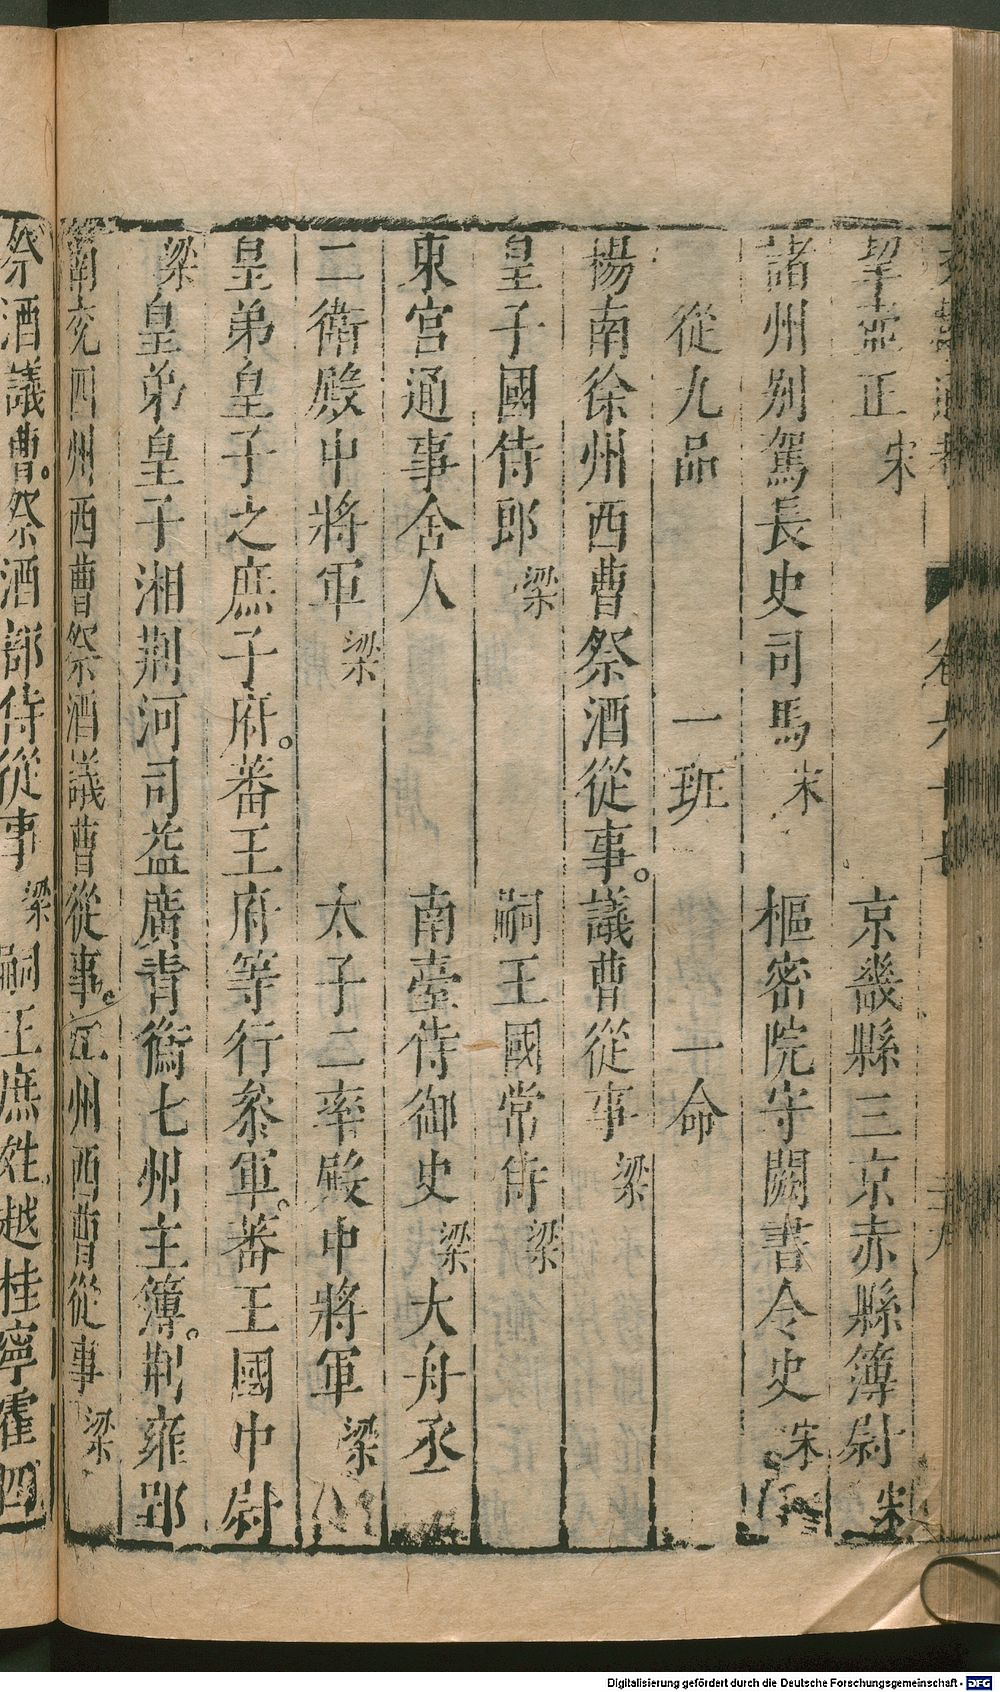 挈壺正宋 京畿縣三京赤縣簿尉宋
諸州別駕長史司馬宋 樞密院守闕書令史宋
從九品 一班 一命
楊南徐州西曹祭酒從事。議曹從事梁
皇子國侍郎梁 嗣王國常侍梁
東宮通事舍人 南臺侍御史梁大舟丞
二衛殿中將軍梁 太子二率殿中將軍梁
皇弟皇子之庶子府。蕃王府等行參軍。蕃王國中尉
梁皇弟皇子湘荆河司益廣青衡七州主簿。荆雍郢
南兗四州西曹祭酒議曹從事。江州西曹從事梁
祭酒議曹。祭酒部侍從事梁嗣王庶姓越桂寧霍四
Digitalisierung gefördert durch die Deutsche Forschungsgemeinschaft - DFG